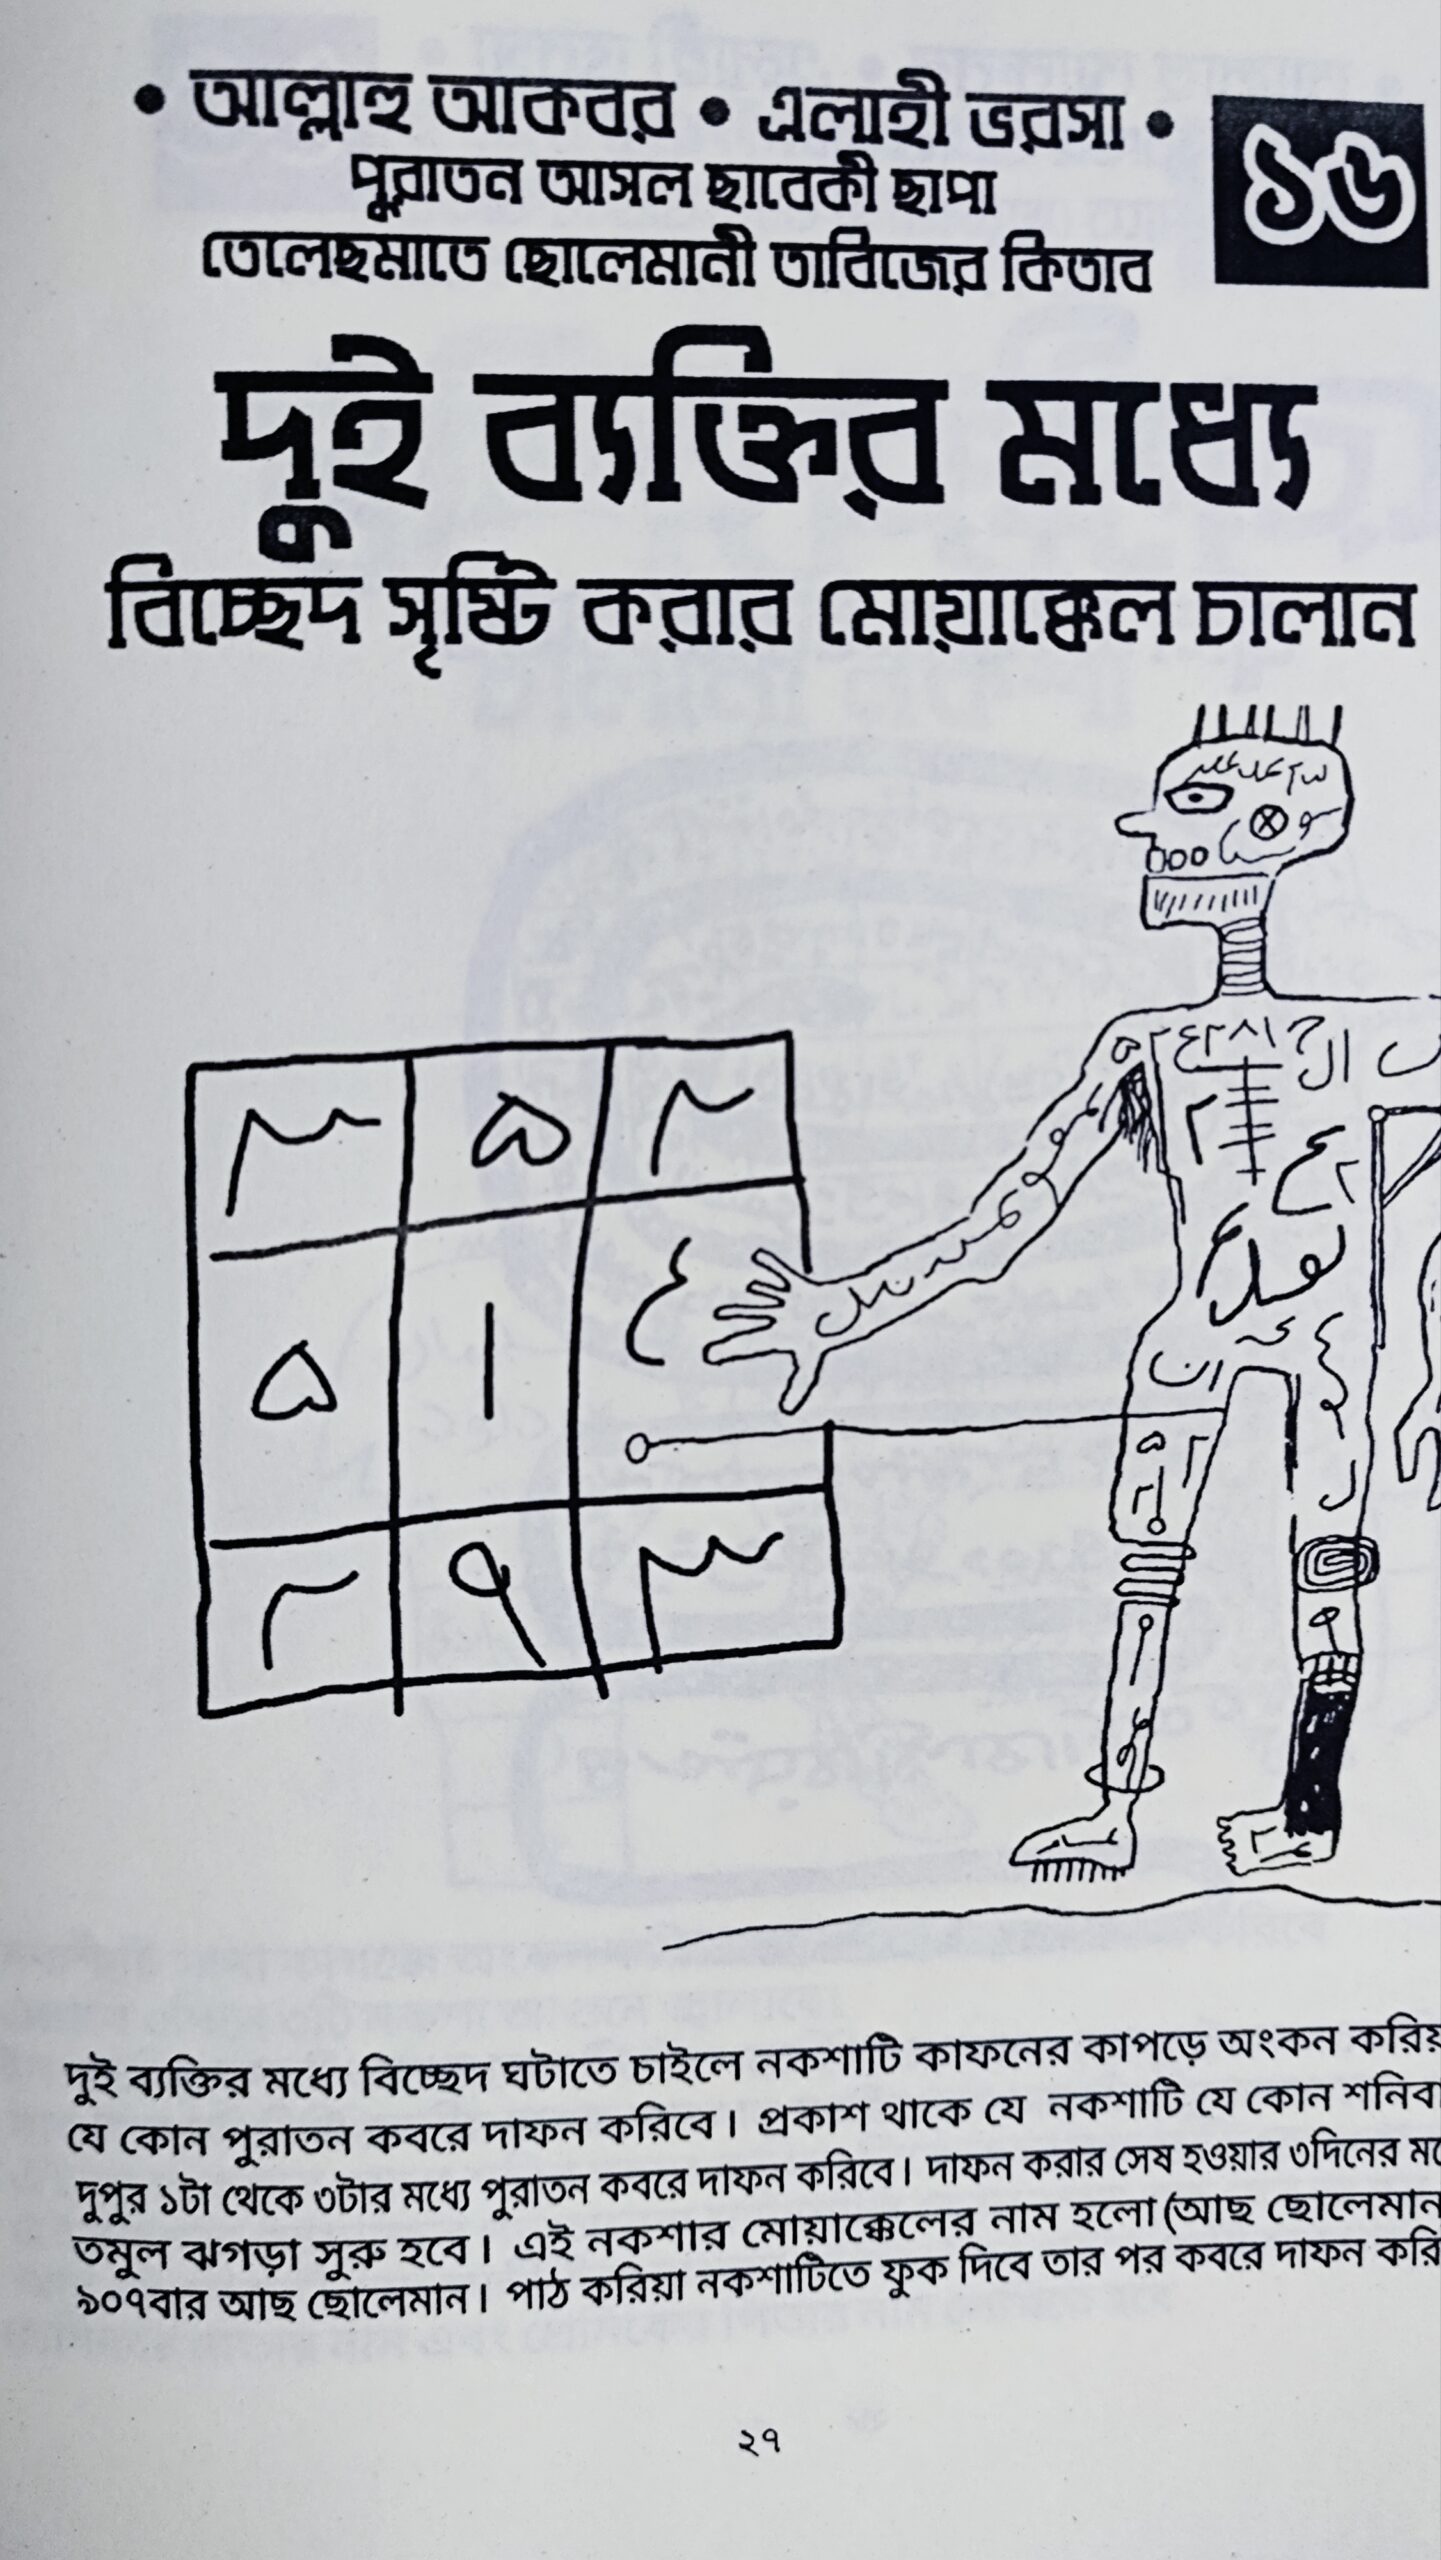 • আল্লাহু আকবর • এলাহী ভরসা •
১৬
পুরাতন আসল ছাবেকী ছাপা
তেলেছমাতে ছোলেমানী তাবিজের কিতাব
দুই ব্যক্তির মধ্যে
বিচ্ছেদ সৃষ্টি করার মোয়াক্কেল চালান
٣ ۵ ٢
۵ ١ ۴
٢ ٩ ٣
দুই ব্যক্তির মধ্যে বিচ্ছেদ ঘটাতে চাইলে নকশাটি কাফনের কাপড়ে অংকন
যে কোন পুরাতন কবরে দাফন করিবে। প্রকাশ থাকে যে নকশাটি যে কোন
দুপুর ১টা থেকে ৩টার মধ্যে পুরাতন কবরে দাফন করিবে। দাফন করার সেষ হওয়ার ৩দিনের
তমুল ঝগড়া সুরু হবে। এই নকশার মোয়াক্কেলের নাম হলো (আছ ছোলেমান
৯০৭বার আছ ছোলেমান। পাঠ করিয়া নকশাটিতে ফুক দিবে তার পর কবরে দাফন
২৭